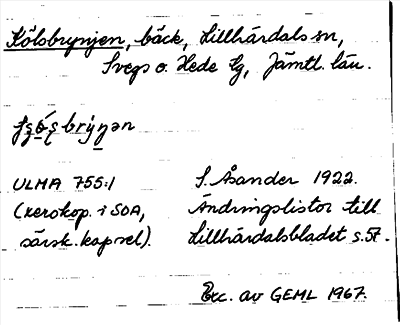 Kölsbrynjen, bäck, Lillhärdals sn,
Svegs o. Hede tg, Jämtl. län.
brýŋən
ULMA 755:1 S. Åsander 1922.
(xerokop. i SOA, Ändringslistor till
särsk. kapsel). Lillhärdalsbladet s. 57.
Exc. av GEML 1967.